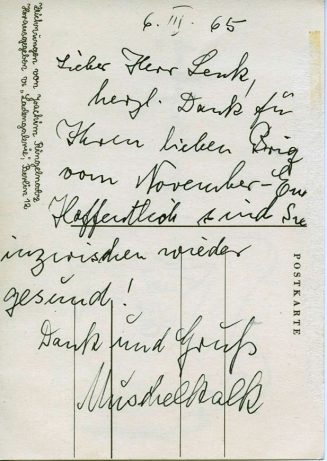 6. III. 65
Lieber Herr Lenk,
herzl. Dank für
Ihren lieben Brief
vom November-Ende
Hoffentlich sind Sie
inzwischen wieder
gesund!
Dank und Gruß
Muschelkalk
Zeichnungen von Joachim Ringelnatz
Herausgegeben v. „Ladengalerie", Berlin 12
POSTKARTE